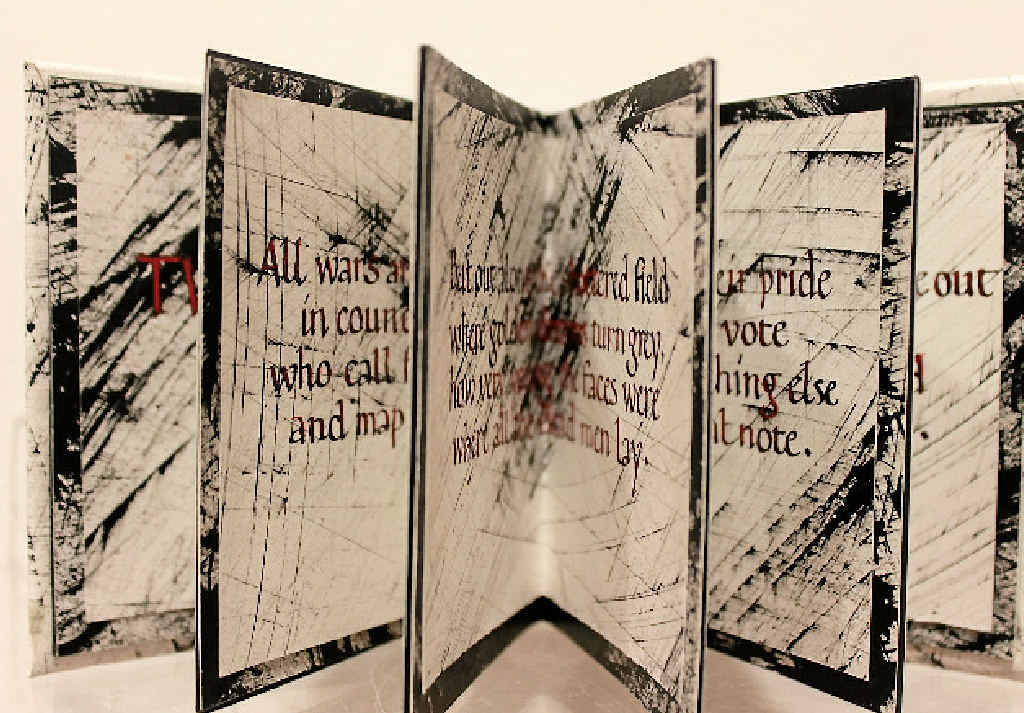 All wars ar
in counc
who call f
and map
But out alon         ttered field
where golde         turn grey,
how very         faces were
where all the         men lay.
ur pride
vote
hing else
nt note.
e out